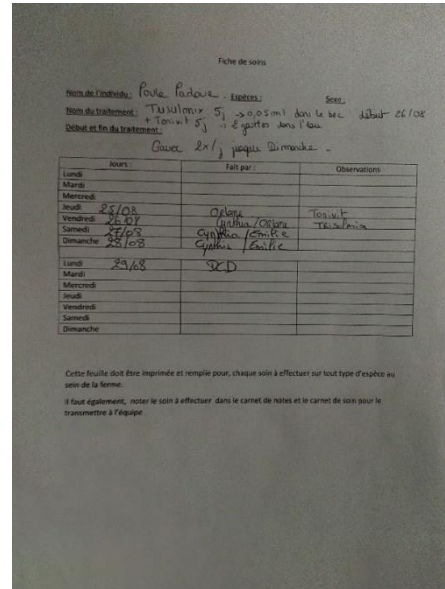 Fiche de soins
Nom de l'individu: Poule Padoue Espèces: Sexe:
Nom du traitement: Trisulmix 5j → 0,05ml dans le bec début 26/08
+ Tonivit 5j → 2 gouttes dans l'eau
Début et fin du traitement:
Gaver 2x/j jusque Dimanche -
Jours: Fait par: Observations
Lundi
Mardi
Mercredi
Jeudi 25/08 Oclane Tonivit
Vendredi 26/08 Cynthia/Oclane Trisulmix
Samedi 27/08 Cynthia/Emilie
Dimanche 28/08 Cynthia/Emilie
Lundi 29/08 DCD
Mardi
Mercredi
Jeudi
Vendredi
Samedi
Dimanche
Cette feuille doit être imprimée et remplie pour, chaque soin à effectuer sur tout type d'espèce au
sein de la ferme.
Il faut également, noter le soin à effectuer dans le carnet de notes et le carnet de soin pour le
transmettre à l'équipe